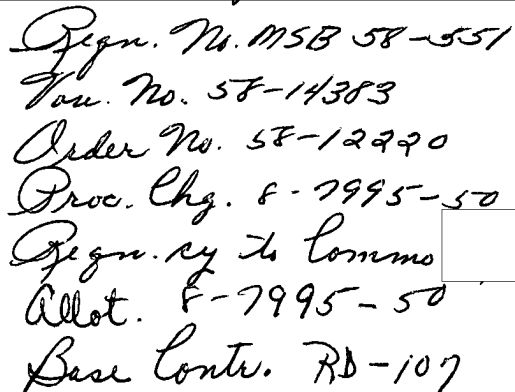 Reqn. No. MSB 58-551
Vou. No. 58-14383
Order No. 58-12220
Proc. Chg. 8-7995-50
Reqn. cy to Commo
Allot. 8-7995-50
Base Contr. RD-107